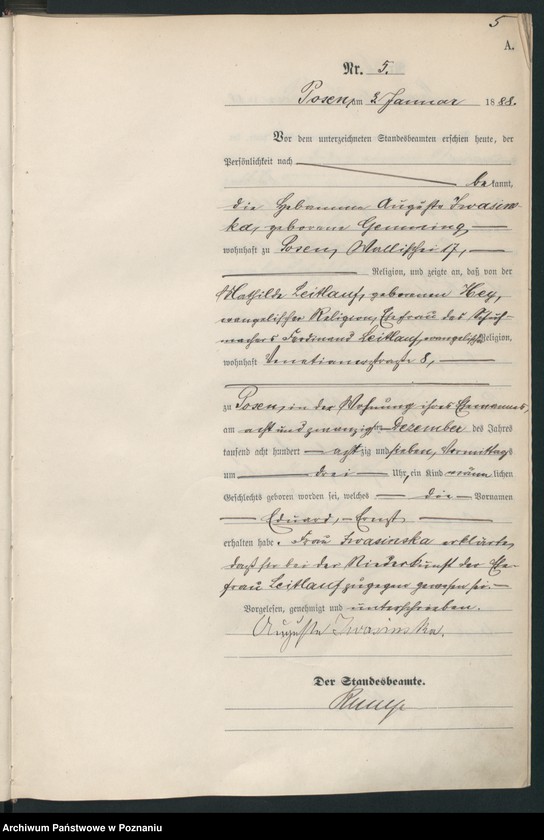 5
A.
Nr. 5.
Posen, am 2 Januar 1888.
Vor dem unterzeichneten Standesbeamten erschien heute, der
Persönlichkeit nach
bekannt,
die Hebamme Auguste Iwasins-
ka, geborene
wohnhaft zu Posen, Wallischei 17,
Religion, und zeigte an, daß von der
Mathilde Leitlauf, geborenen Hey,
evangelischer Religion, Ehefrau des Schuh-
machers Ferdinand Leitlauf, evangelischer Religion,
wohnhaft Venetianerstraße 8,
zu Posen, in der Wohnung ihres Ehemannes,
am acht und zwanzigsten Dezember des Jahres
tausend acht hundert achtzig und sieben, Vormittags
um drei Uhr, ein Kind männlichen
Geschlechts geboren worden sei, welches die Vornamen
Eduard, Ernst
erhalten habe. Frau Iwasinska erklärte,
daß sie bei der Niederkunft der Ehe-
frau Leitlauf zugegen gewesen sei.
Vorgelesen, genehmigt und unterschrieben.
Auguste Iwasinska.
Der Standesbeamte.
Archiwum Państwowe w Poznaniu